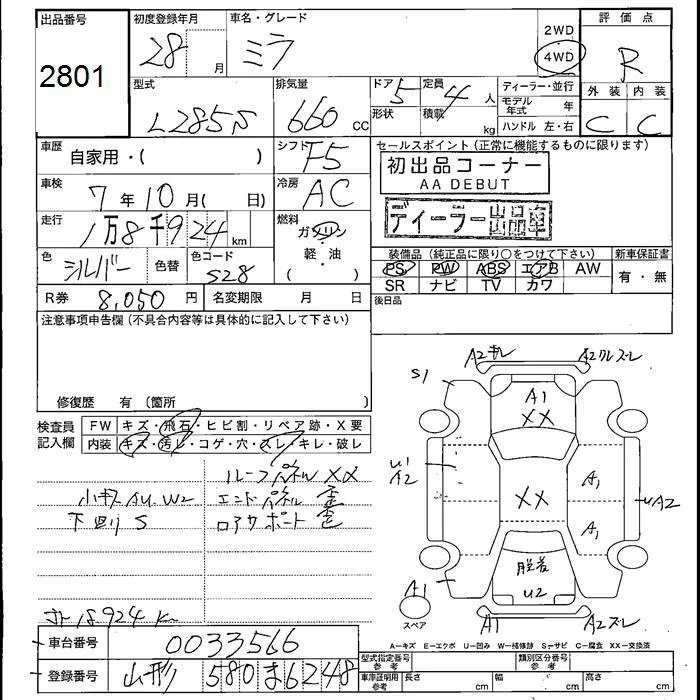 出品番号
2801
初度登録年月
28 月
車名・グレード
ミラ
2WD
4WD
評価点
R
外装 内装
C C
型式
L285S
排気量
660 cc
ドア 5
形状
定員 4 人
積載 kg
ディーラー・並行
モデル年式 年
ハンドル 左・右
車歴
自家用・( )
シフト F5
車検
7 年 10 月( 日)
冷房 AC
走行
1万8千924 km
燃料
ガソリン
軽・油
( )
色 シルバー
色替
色コード
S28
R券 8,050 円
名変期限 月 日
セールスポイント(正常に機能するものに限ります)
初出品コーナー
AA DEBUT
ディーラー出品車
装備品(純正品に限り○をつけて下さい)
新車保証書
PS PW ABS エアB AW
SR ナビ TV カワ
有・無
後日品
注意事項申告欄(不具合内容等は具体的に記入して下さい)
修復歴 有 〔箇所 〕
検査員記入欄
FW キズ・飛石・ヒビ割・リペア跡・X要
内装 キズ・汚レ・コゲ・穴・スレ・キレ・破レ
ルーフパネル XX
小キズ AU. W2
エンドパネル 歪
下回り S
ロアサポート 歪
18924 K
A2キレ
A2ワレズレ
S1
A1
XX
U1
A2
XX
A1
A1
UA2
脱着
U2
A1
スペア
A1
A2ズレ
A-キズ E-エクボ U-凹み W-補修跡 S-サビ C-腐食 XX-交換済
車台番号
0033566
登録番号
山形 580 ま 6248
型式指定番号
参考
類別区分番号
参考
車庫証明用
参考
長さ cm
幅 cm
高さ cm